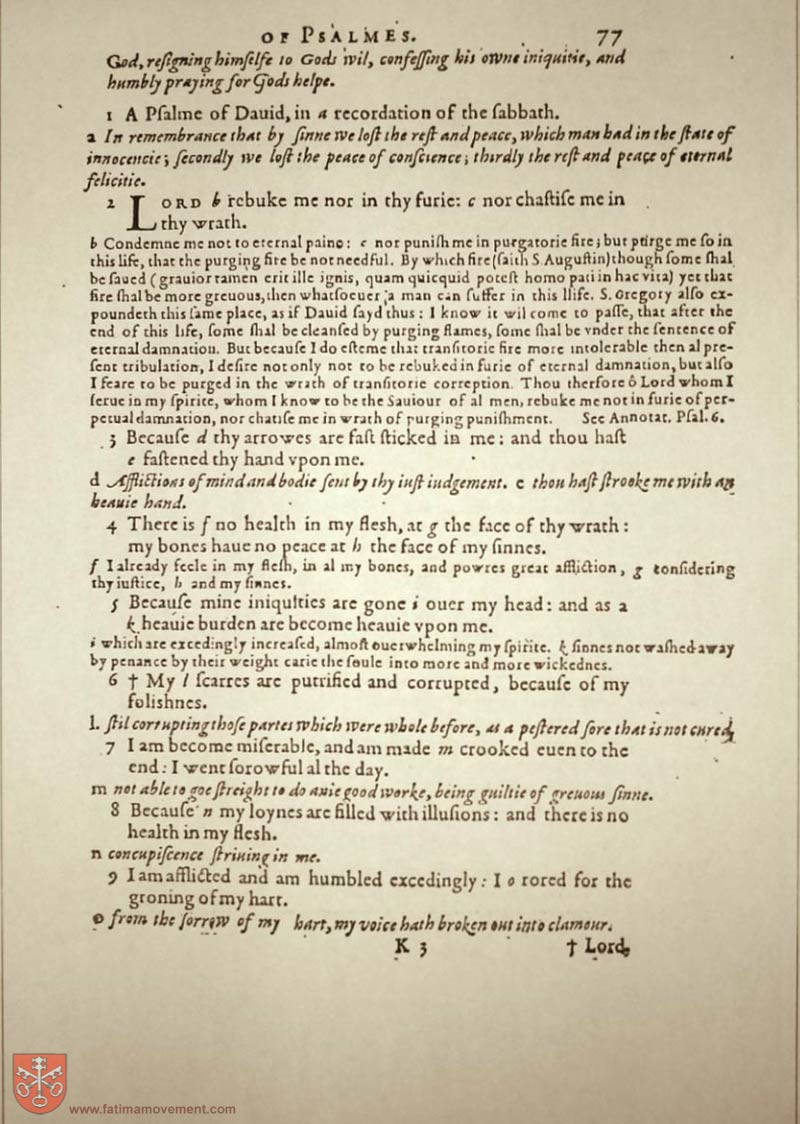 OF PSALMES. 77
God, reſigning himſelfe to Gods wil, confeſſing his owne iniquitie, and
humbly praying for Gods helpe.
1 A Pſalme of Dauid, in a recordation of the ſabbath.
a In remembrance that by ſinne we loſt the reſt and peace, which man had in the ſtate of
innocencie; ſecondly we loſt the peace of conſcience; thirdly the reſt and peace of eternal
felicitie.
2 LORD b rebuke me not in thy furie: c nor chaſtiſe me in
thy wrath.
b Condemne me not to eternal paine: c nor puniſh me in purgatorie fire; but purge me ſo in
this life, that the purging fire be not needful. By which fire (ſaith S. Auguſtin) though ſome ſhal
be ſaued (grauior tamen erit ille ignis, quam quicquid poteſt homo pati in hac vita) yet that
fire ſhal be more greuous, then whatſoeuer a man can ſuffer in this llife. S. Gregory alſo ex-
poundeth this ſame place, as if Dauid ſayd thus: I know it wil come to paſſe, that after the
end of this life, ſome ſhal be cleanſed by purging flames, ſome ſhal be vnder the ſentence of
eternal damnation. But becauſe I do eſteme that tranſitorie fire more intolerable then al pre-
ſent tribulation, I deſire not only not to be rebuked in furie of eternal damnation, but alſo
I feare to be purged in the wrath of tranſitorie correption. Thou therfore ô Lord whom I
ſerue in my ſpirite, whom I know to be the Sauiour of al men, rebuke me not in furie of per-
petual damnation, nor chatiſe me in wrath of purging puniſhment. See Annotat. Pſal. 6.
3 Becauſe d thy arrowes are faſt ſticked in me: and thou haſt
e faſtened thy hand vpon me.
d Afflictions of mind and bodie ſent by thy iuſt iudgement. e thou haſt ſtrooke me with an
heauie hand.
4 There is f no health in my fleſh, at g the face of thy wrath:
my bones haue no peace at h the face of my ſinnes.
f I already feele in my fleſh, in al my bones, and powres great affliction, g conſidering
thy iuſtice, h and my ſinnes.
5 Becauſe mine iniquities are gone i ouer my head: and as a
k heauie burden are become heauie vpon me.
i which are excedingly increaſed, almoſt ouerwhelming my ſpirite. k ſinnes not waſhed away
by penance by their weight carie the ſoule into more and more wickednes.
6 † My l ſcarres are putrified and corrupted, becauſe of my
foliſhnes.
l. ſtil corrupting thoſe partes which were whole before, as a peſtered ſore that is not cured,
7 I am become miſerable, and am made m crooked euen to the
end: I went ſorowful al the day.
m not able to goe ſtreight to do anie good worke, being guiltie of greuous ſinne.
8 Becauſe n my loynes are filled with illuſions: and there is no
health in my fleſh.
n concupiſcence ſtriuing in me.
9 I am afflicted and am humbled excedingly: I o rored for the
groning of my hart.
o from the ſorrow of my hart, my voice hath broken out into clamour.
K 3 † Lord,
www.fatimamovement.com